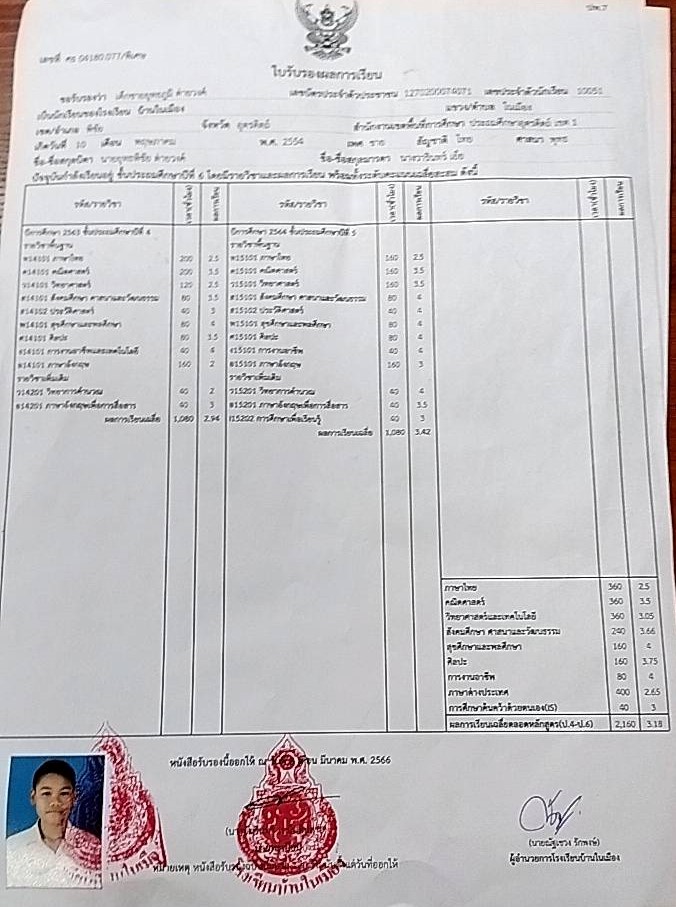 ปพ.7
เลขที่ ศธ 04180.077/พิเศษ
ใบรับรองผลการเรียน
ขอรับรองว่า เด็กชายยุทธภูมิ ค่ายวงค์ เลขบัตรประจำตัวประชาชน เลขประจำตัวนักเรียน 10051
เป็นนักเรียนของโรงเรียน บ้านในเมือง แขวง/ตำบล ในเมือง
เขต/อำเภอ พิชัย จังหวัด อุตรดิตถ์ สำนักงานเขตพื้นที่การศึกษา ประถมศึกษาอุตรดิตถ์ เขต 1
เกิดวันที่ 10 เดือน พฤษภาคม พ.ศ. 2554 เพศ ชาย สัญชาติ ไทย ศาสนา พุทธ
ชื่อ-ชื่อสกุลบิดา ชื่อ-ชื่อสกุลมารดา
ปัจจุบันกำลังเรียนอยู่ ชั้นประถมศึกษาปีที่ 6 โดยมีรายวิชาและผลการเรียน พร้อมทั้งระดับคะแนนเฉลี่ยสะสม ดังนี้
รหัส/รายวิชา เวลา(ชั่วโมง) ผลการเรียน รหัส/รายวิชา เวลา(ชั่วโมง) ผลการเรียน รหัส/รายวิชา เวลา(ชั่วโมง) ผลการเรียน
ปีการศึกษา 2563 ชั้นประถมศึกษาปีที่ 4 ปีการศึกษา 2564 ชั้นประถมศึกษาปีที่ 5
รายวิชาพื้นฐาน รายวิชาพื้นฐาน
ท14101 ภาษาไทย 200 2.5 ท15101 ภาษาไทย 160 2.5
ค14101 คณิตศาสตร์ 200 3.5 ค15101 คณิตศาสตร์ 160 3.5
ว14101 วิทยาศาสตร์ 120 2.5 ว15101 วิทยาศาสตร์ 160 3.5
ส14101 สังคมศึกษา ศาสนาและวัฒนธรรม 80 3.5 ส15101 สังคมศึกษา ศาสนาและวัฒนธรรม 80 4
ส14102 ประวัติศาสตร์ 40 3 ส15102 ประวัติศาสตร์ 40 4
พ14101 สุขศึกษาและพลศึกษา 80 4 พ15101 สุขศึกษาและพลศึกษา 80 4
ศ14101 ศิลปะ 80 3.5 ศ15101 ศิลปะ 80 4
ง14101 การงานอาชีพและเทคโนโลยี 40 4 ง15101 การงานอาชีพ 40 4
อ14101 ภาษาอังกฤษ 160 2 อ15101 ภาษาอังกฤษ 160 3
รายวิชาเพิ่มเติม รายวิชาเพิ่มเติม
ว14201 วิทยาการคำนวณ 40 2 ว15201 วิทยาการคำนวณ 40 4
อ14201 ภาษาอังกฤษเพื่อการสื่อสาร 40 3 อ15201 ภาษาอังกฤษเพื่อการสื่อสาร 40 3.5
ผลการเรียนเฉลี่ย 1,080 2.94 I15202 การศึกษาเพื่อเรียนรู้ 40 3
ผลการเรียนเฉลี่ย 1,080 3.42
ภาษาไทย 360 2.5
คณิตศาสตร์ 360 3.5
วิทยาศาสตร์และเทคโนโลยี 360 3.05
สังคมศึกษา ศาสนาและวัฒนธรรม 240 3.66
สุขศึกษาและพลศึกษา 160 4
ศิลปะ 160 3.75
การงานอาชีพ 80 4
ภาษาต่างประเทศ 400 2.65
การศึกษาค้นคว้าด้วยตนเอง(IS) 40 3
ผลการเรียนเฉลี่ยตลอดหลักสูตร(ป.4-ป.6) 2,160 3.18
หนังสือรับรองนี้ออกให้ ณ มีนาคม พ.ศ. 2566
(นายณัฐเขวง รักพงษ์)
ผู้อำนวยการโรงเรียนบ้านในเมือง
หมายเหตุ หนังสือรับรอง วันที่ออกให้
โรงเรียนบ้านในเมือง